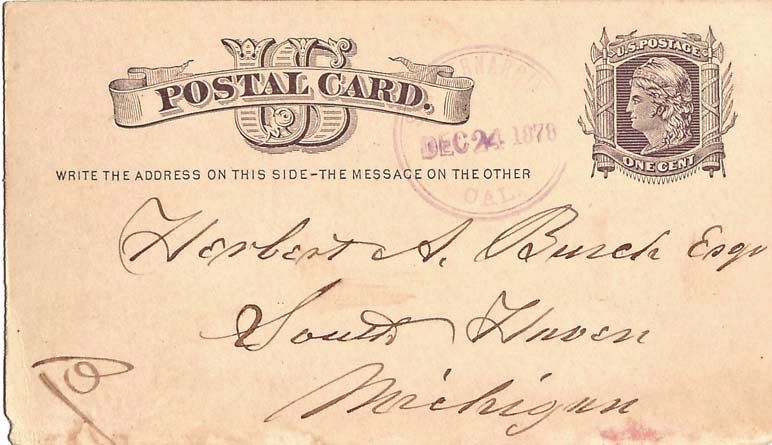 US
POSTAL CARD.
U.S. POSTAGE
ONE CENT
DEC 24 1878
CAL.
WRITE THE ADDRESS ON THIS SIDE–THE MESSAGE ON THE OTHER
Herbert A. Burch Esqr
South Haven
Michigan